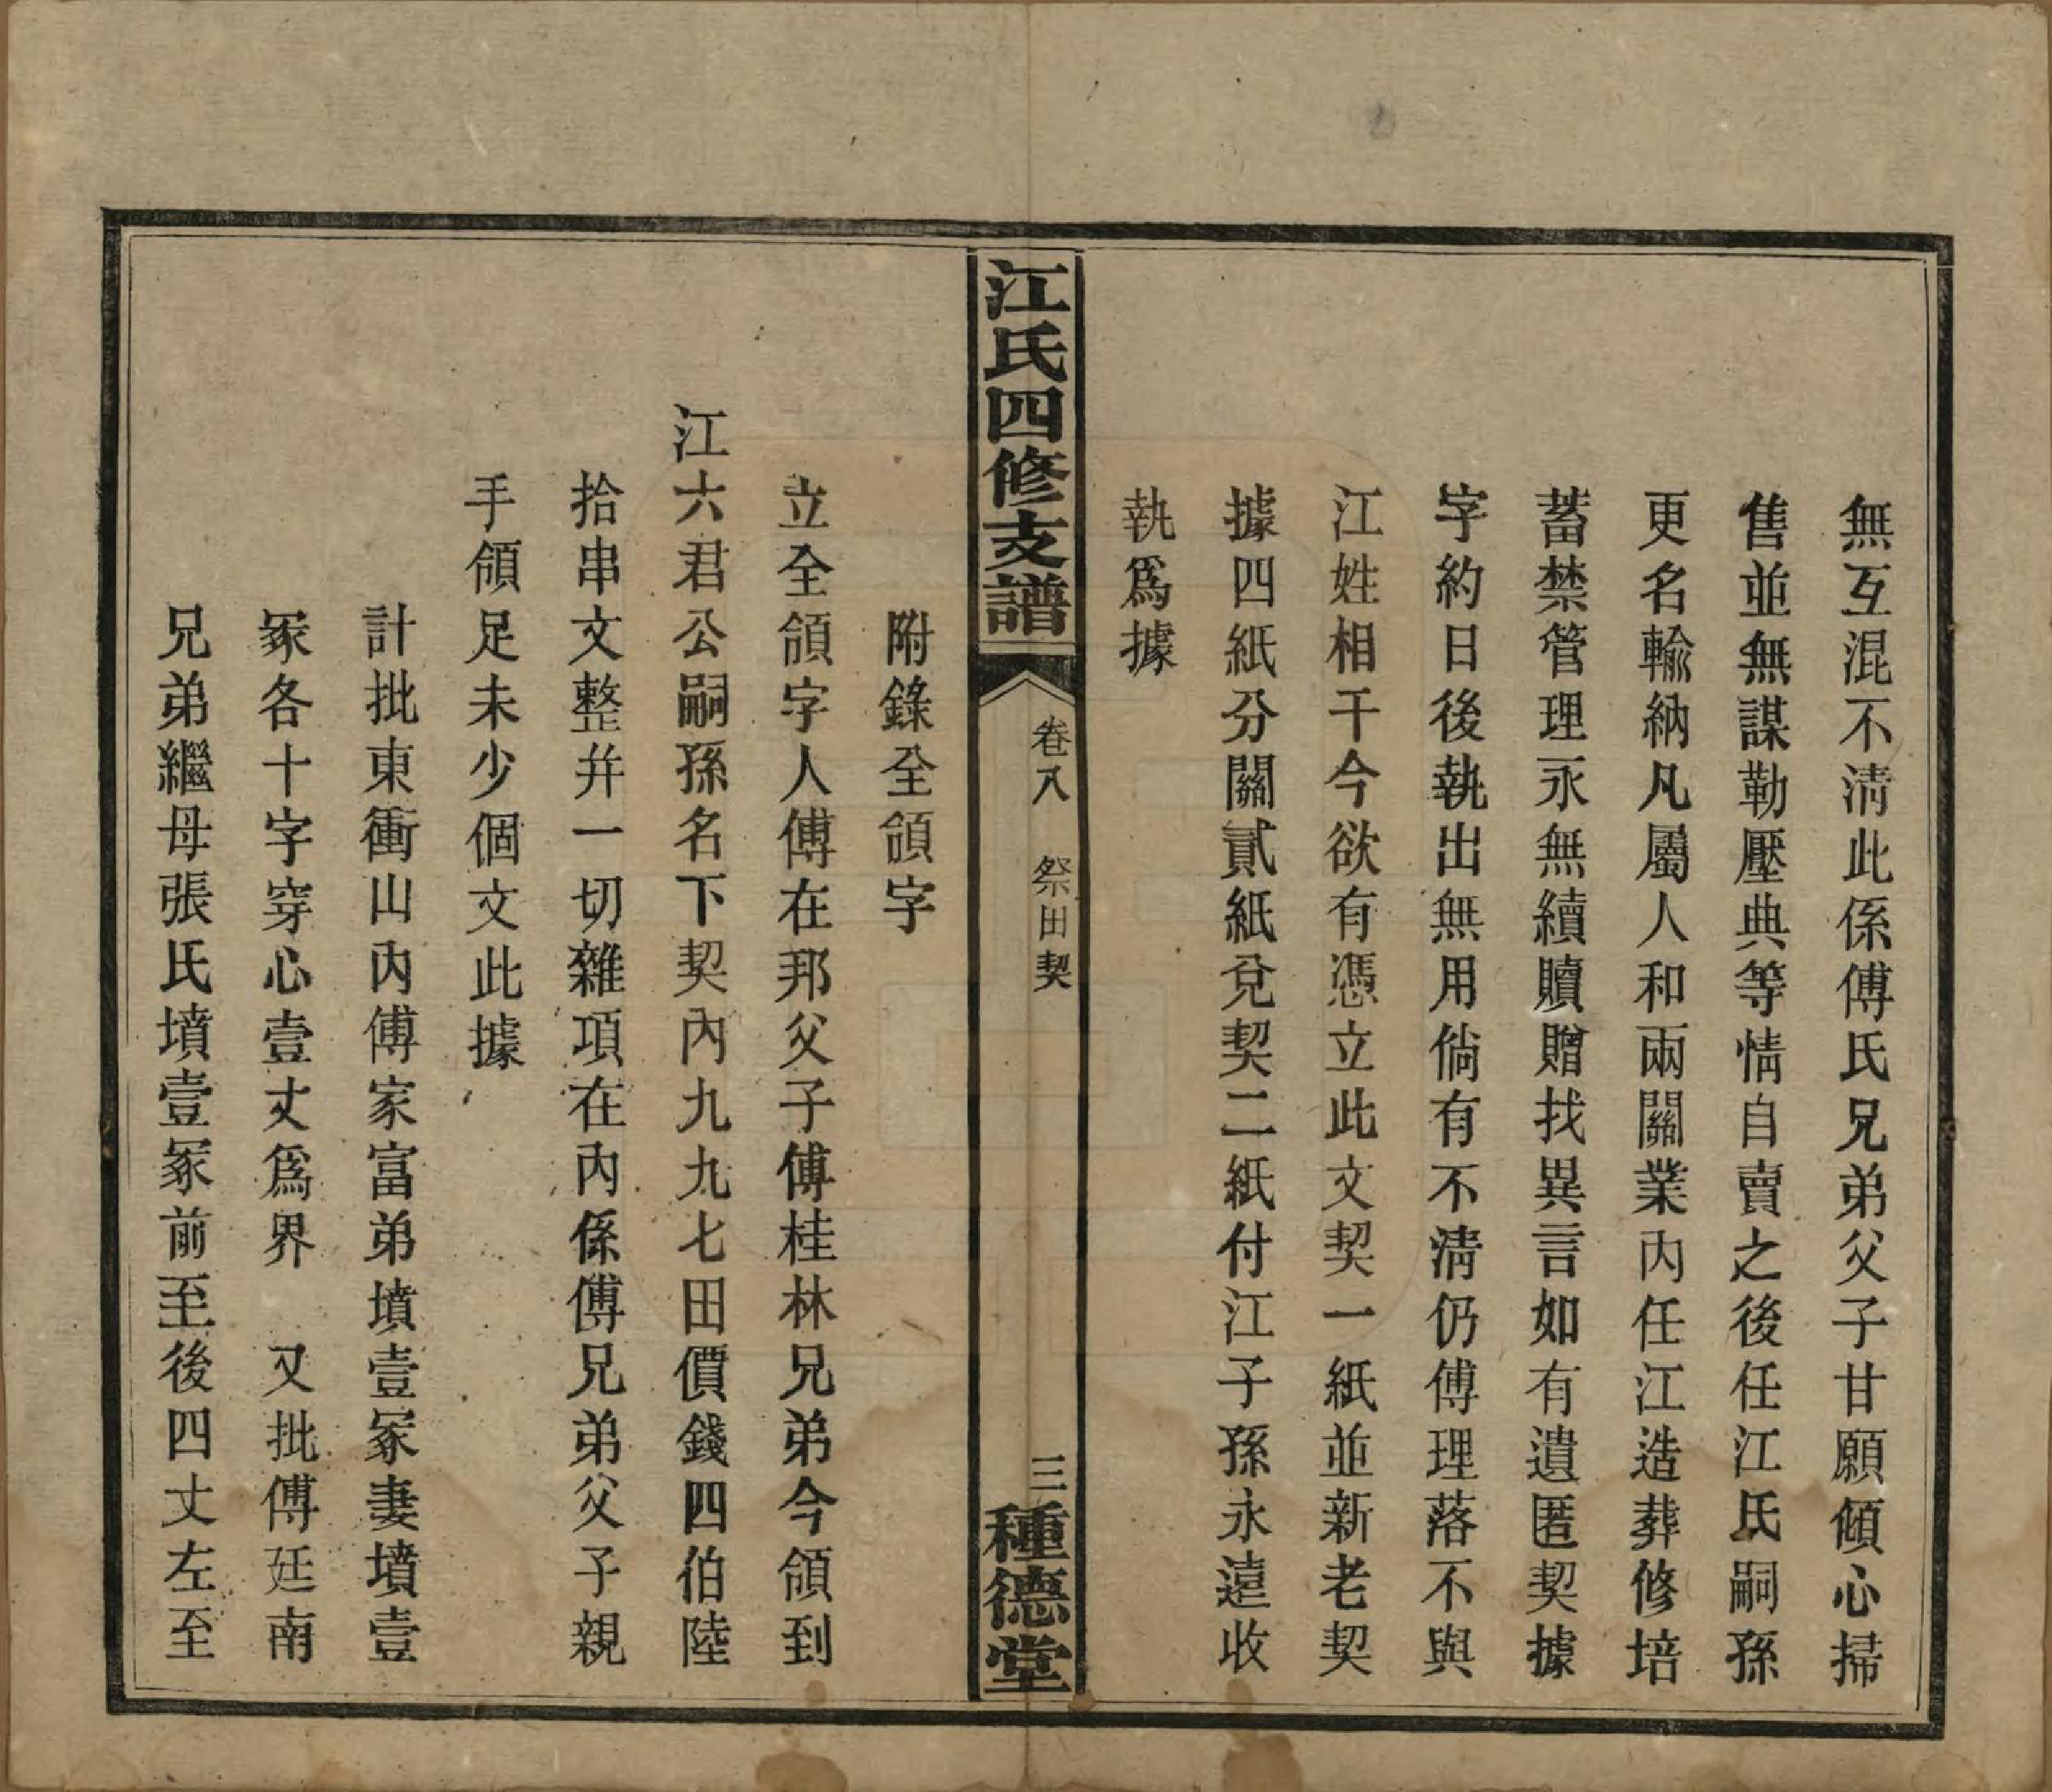 無互混不淸此係傅氏兄弟父子甘願傾心掃
售並無謀勒壓典等情自賣之後任江氏嗣孫
更名輸納凡屬人和兩關業內任江造葬修培
蓄禁管理永無續贖贈找異言如有遺匿契據
字約日後執出無用倘有不淸仍傅理落不與
江姓相干今欲有憑立此文契一紙並新老契
據四紙分關貳紙兌契二紙付江子孫永遠收
執爲據
江氏四修支譜
卷八　祭田契
三
種德堂
附錄全領字
立全領字人傅在邦父子傅桂林兄弟今領到
江六君公嗣孫名下契內九九七田價錢四伯陸
拾串文整幷一切雜項在內係傅兄弟父子親
手領足未少個文此據
計批東衝山內傅家富弟墳壹冢妻墳壹
冢各十字穿心壹丈爲界　又批傅廷南
兄弟繼母張氏墳壹冢前至後四丈左至